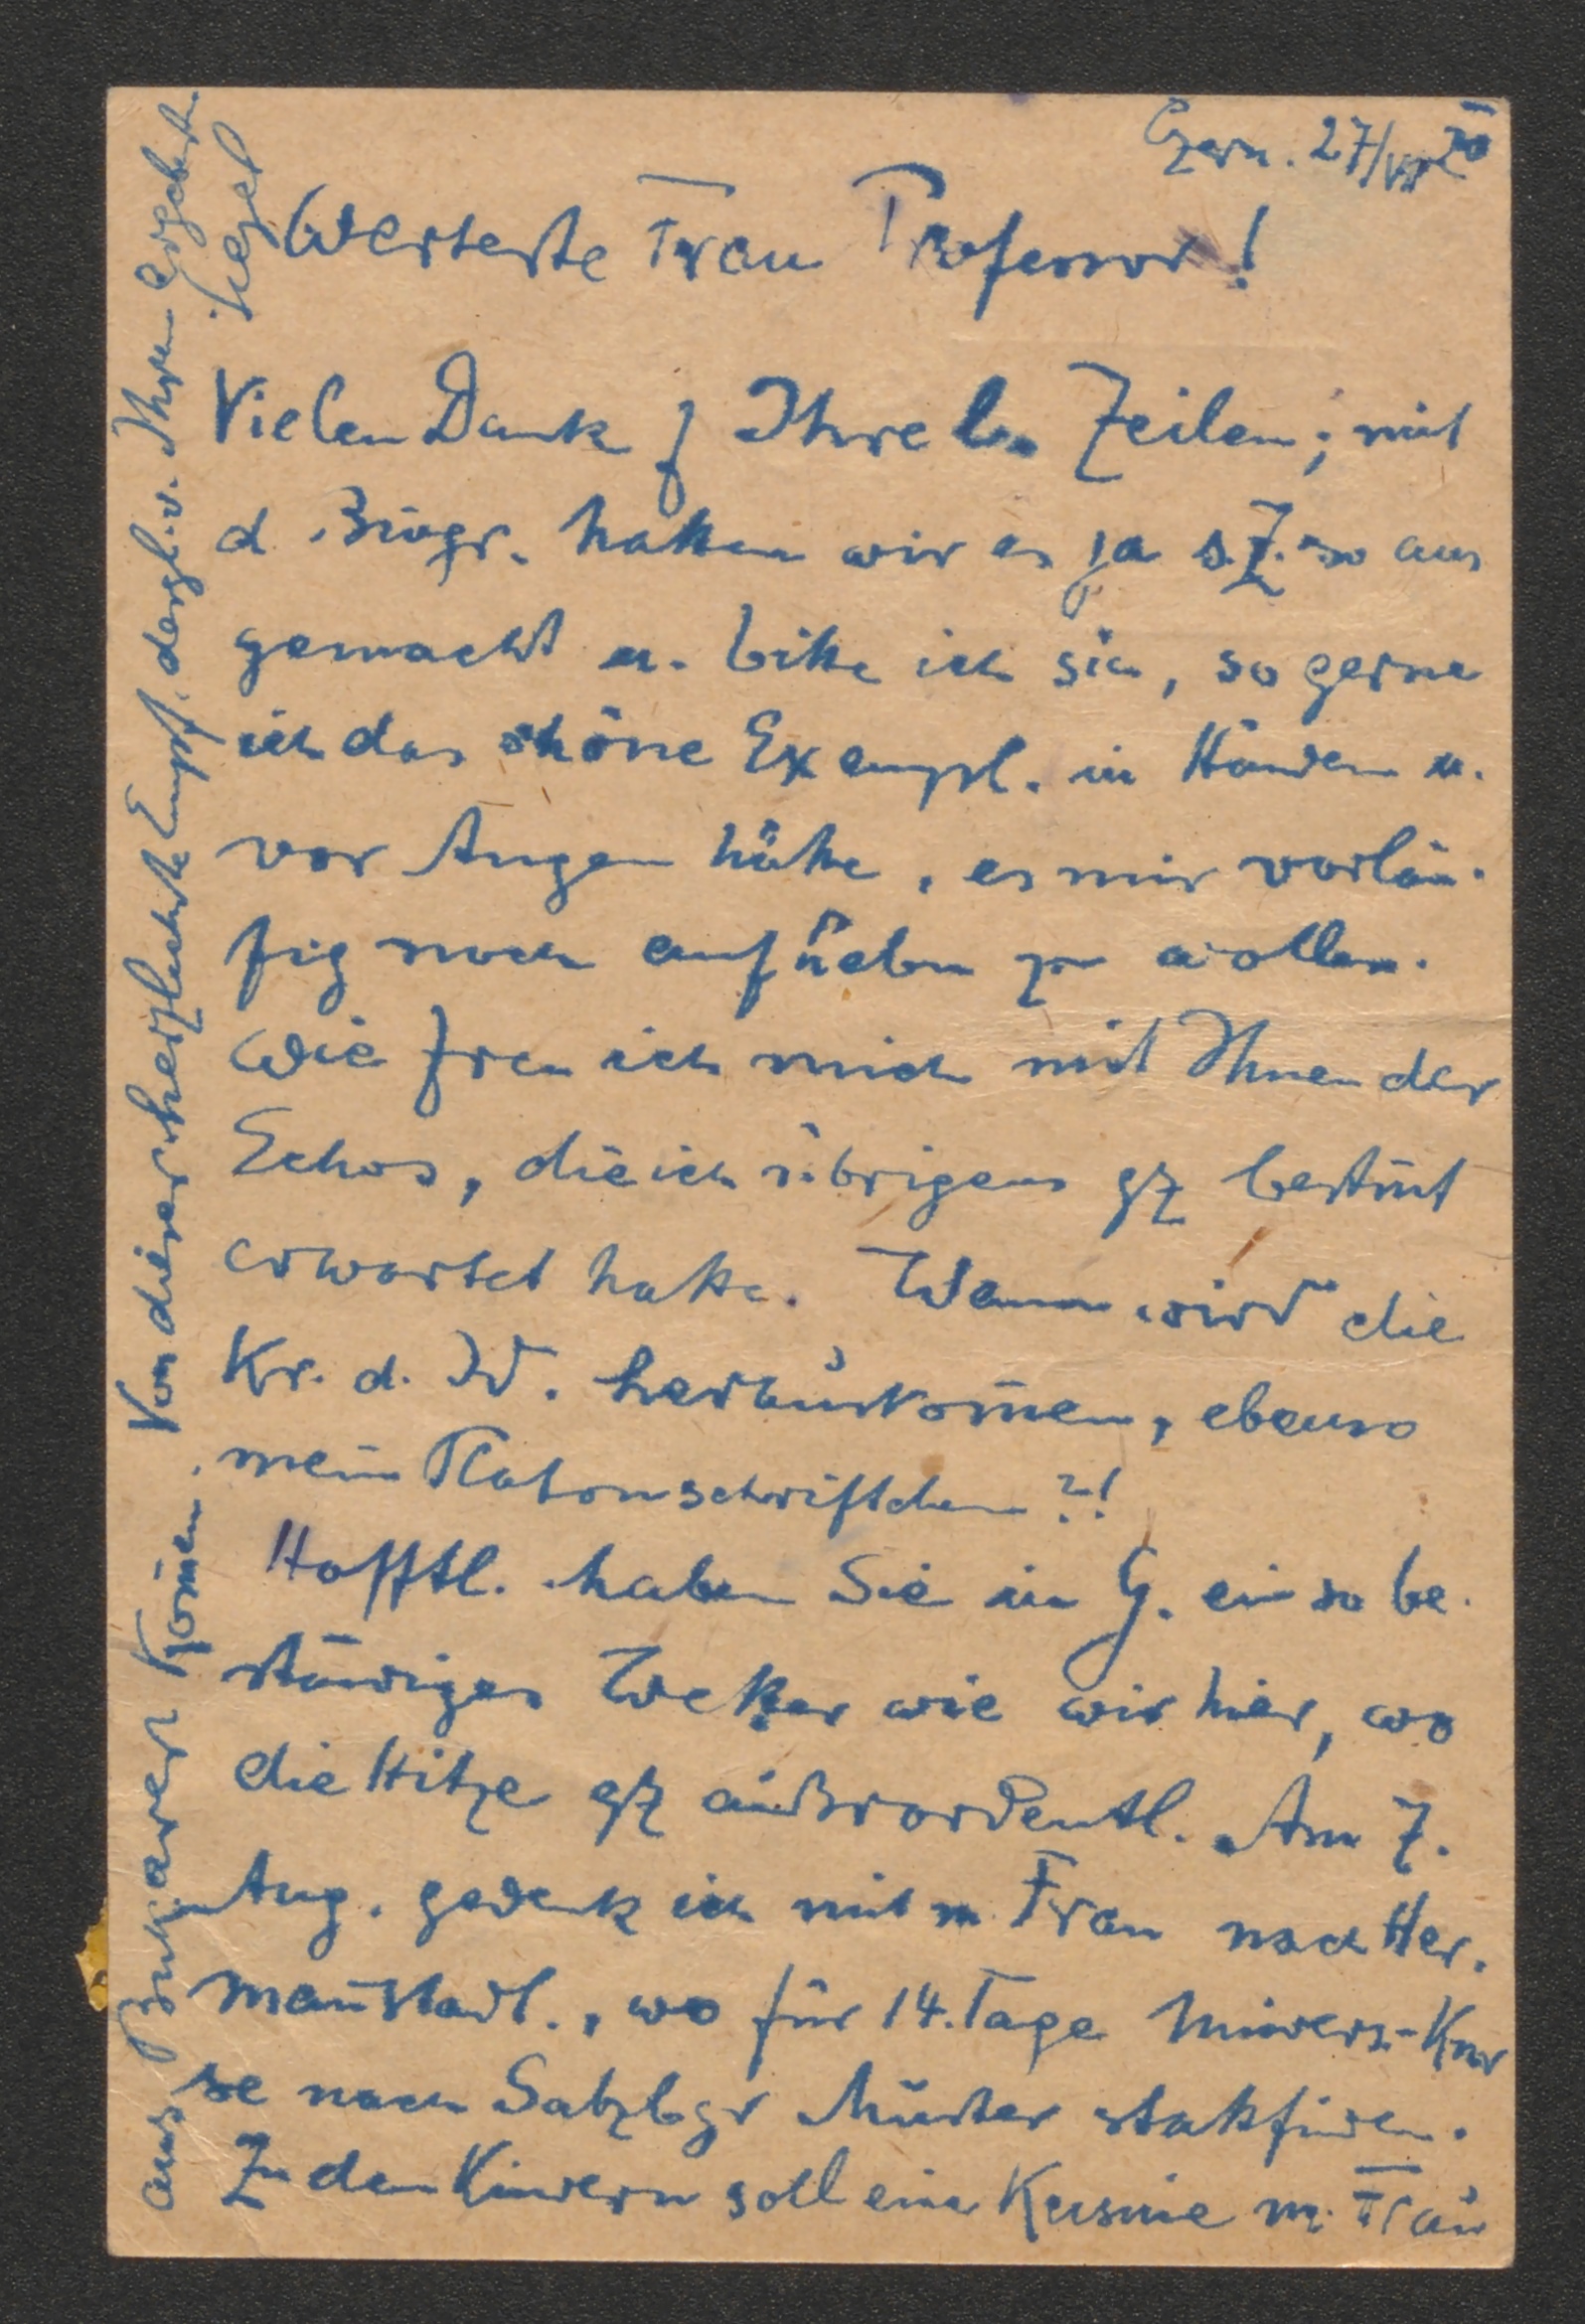 Czern. 27/VII 20
Werteste Frau Professor!
Vielen Dank f Ihre lb. Zeilen; mit
d. Biogr. hatten wir es ja s.Z. so aus
gemacht u. bitte ich sie, so gerne
ich das schöne Exempl. in Händen u.
vor Augen hätte, es mir vorläu-
fig noch aufheben zu wollen.
Wie freu ich mich mit Ihnen der
Echos, die ich übrigens gz bestim̄t
erwartet hatte. Wann wird die
Kr. d. W. herauskom̄en, ebenso
mein Platonschriftchen?!
Hofftl. haben Sie in G. ein so be-
ständiges Wetter wie wir hier, wo
die Hitze gz außerordentl. Am 7.
Aug. gedenk ich mit m. Frau nach Her-
man̄stadt., wo für 14 Tage Univers.-Kur
se nach Salzbgr Muster stattfinden.
Zu den Kindern soll eine Kusine m. Frau
aus Bukarest kom̄en. Von dieser herzlichste Empf. dergl. v. Ihrem ergebst.